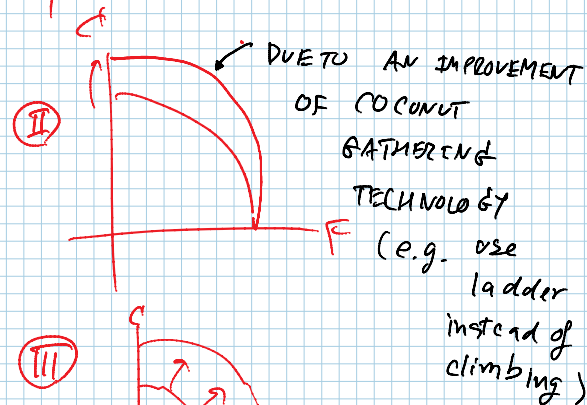 C
DUE TO AN IMPROVEMENT
II
OF COCONUT
GATHERING
TECHNOLOGY
F
(e.g. use
ladder
instead of
climbing)
C
III